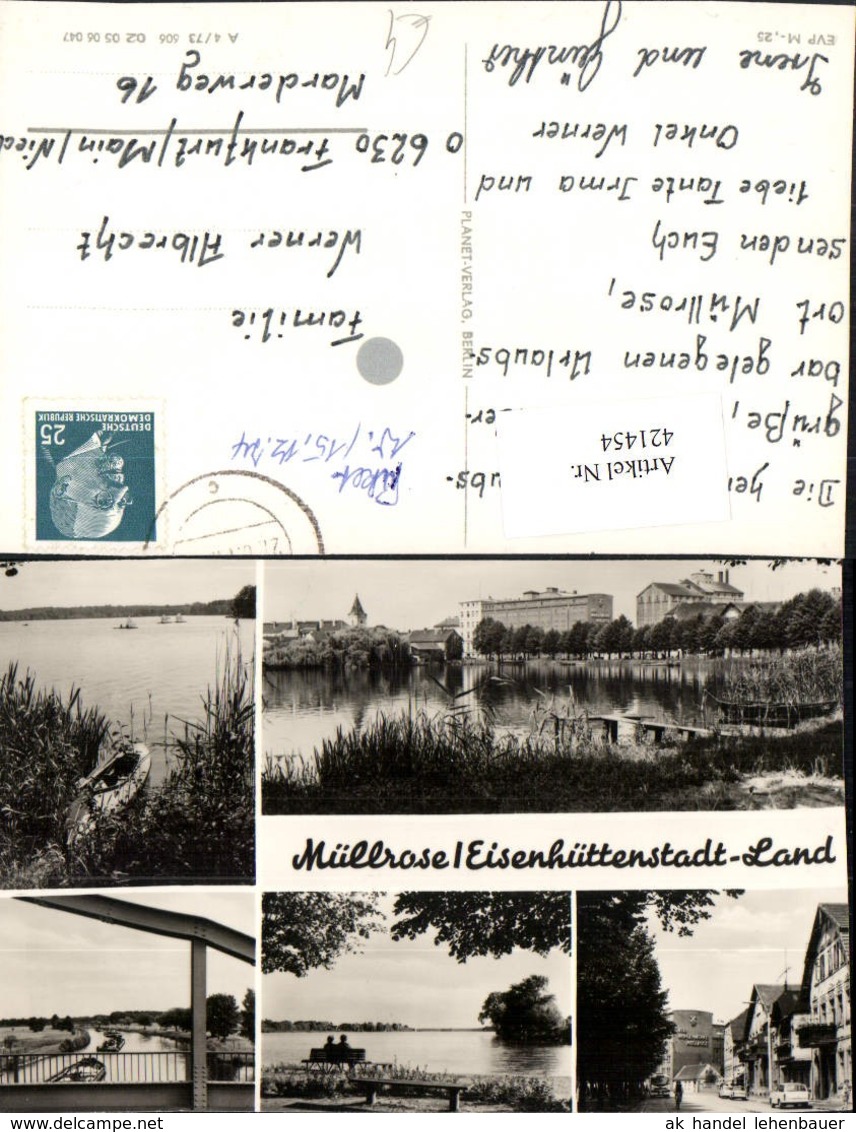 Die her ubs-
grüße, er-
bar gelegenen Urlaubs-
ort Müllrose,
senden Euch
liebe Tante Irma und
Onkel Werner
Irene und Günther
EVP M -,25
PLANET-VERLAG, BERLIN
DEUTSCHE
DEMOKRATISCHE REPUBLIK
25
15.12.74
Familie
Werner Albrecht
6230 Frankfurt/Main/Nied
Marderweg 16
A 4/73 606 02 05 06 047
Artikel Nr.
421454
Müllrose/Eisenhüttenstadt-Land
ak handel lehenbauer